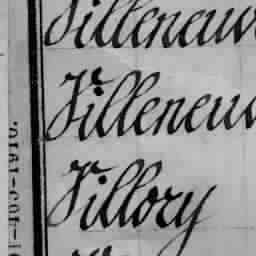 Villeneuv
Villeneuv
Villory